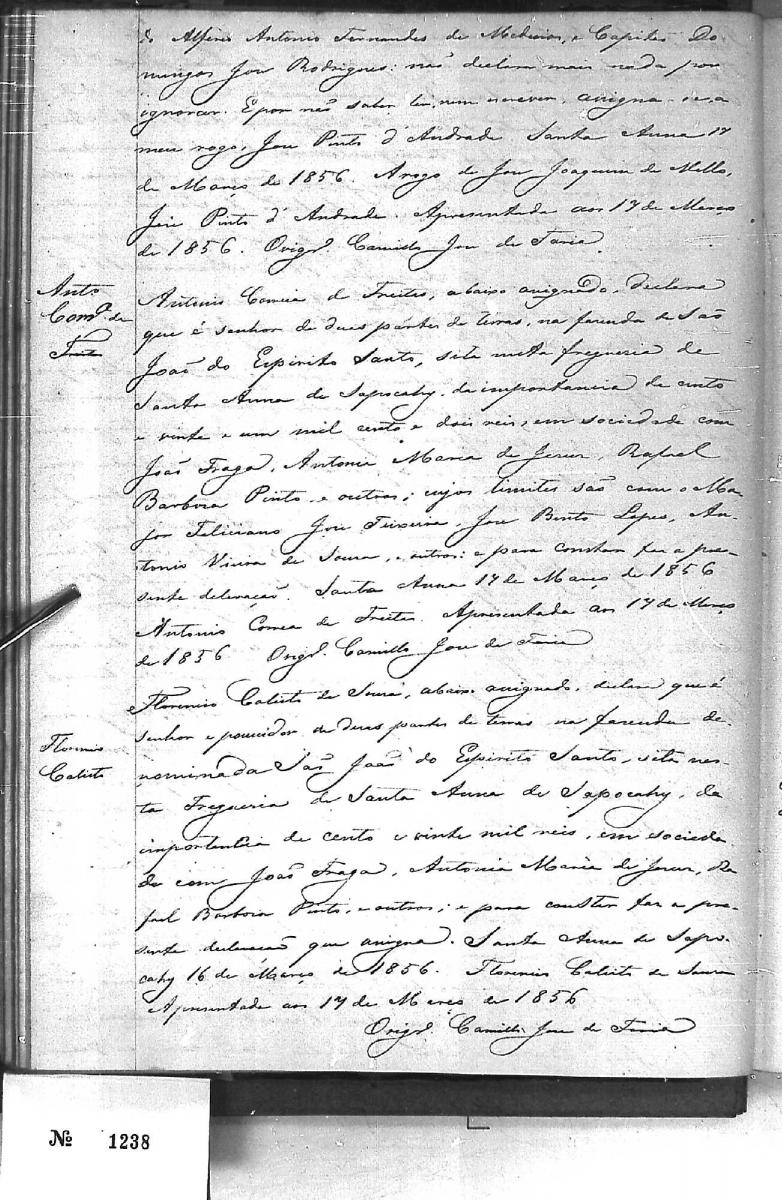 do Alferes Antonio Fernandes de Medeiros, e Capitão Do-
mingos Jose Rodrigues: não declara mais nada por
ignorar. E por não saber ler, nem escrever, assigna-se, a
meu rogo, Jose Pinto d'Andrade Santa Anna 17
de Março de 1856. Arogo de Jose Joaquim de Mello,
Jose Pinto d'Andrade. Apresentada aos 17 de Março
de 1856. O vigrº Camillo Jose de Faria
Antº
Corrª de
Freitas
Antonio Correia de Freitas, abaixo assignado, declara
que é senhor de duas partes de terras, na fazenda de São
João do Espirito Santo, sita nesta freguezia de
Santa Anna de Sapocahy, da importancia de cento
e vinte e um mil cento e dois reis, em sociedade com
João Fraga, Antonia Maria de Jesus, Rafael
Barbosa Pinto, e outros; cujos limites são com o Ma-
jor Feliciano Jose Teixeira, Jose Bento Lopes, An-
tonio Vieira de Souza, e outros: e para constar faz a pre-
sente declaração. Santa Anna 17 de Março de 1856
Antonio Correa de Freitas. Apresentada aos 17 de Março
de 1856 O vigrº Camillo Jose de Faria
Florencio
Calisto
Florencio Calisto de Souza, abaixo assignado, declara que é
senhor e possuidor de duas partes de terras na fazenda de-
nominada São João do Espirito Santo, sita nes-
ta Freguezia de Santa Anna de Sapocahy, da
importancia de cento e vinte mil reis, em socieda-
de com João Fraga, Antonia Maria de Jesus, Ra-
fael Barbosa Pinto, e outros; e para constar faz a pre-
sente declaração que assigna. Santa Anna de Sapo-
cahy 16 de Março de 1856. Florencio Calisto de Souza
Apresentada aos 17 de Março de 1856
O vigrº Camillo Jose de Faria
№ 1238